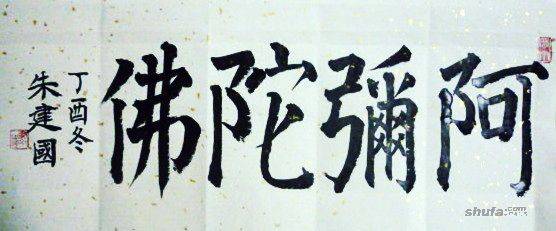 阿彌陀佛
丁酉冬
朱建國
shufa.com